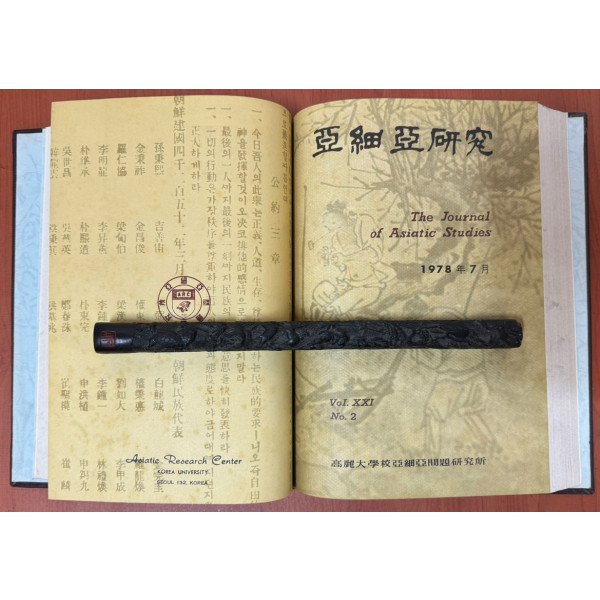 公約三章
一、今日吾人의此擧는正義、人道、生存、
하는民族的要求ㅣ니오즉自由
神을發揮할것이오決코排他的感情으로
하지말라
一、最後의一人까지最後의一刻까지民族의
意思를快히發表하라
一、一切의行動은가장秩序를尊重하야
態度로하야금어대까
正大하게하라
朝鮮建國四千二百五十二年三月
朝鮮民族代表
孫秉熙 白龍城
金秉祚 金昌俊 權秉悳 羅龍煥
羅仁協 梁甸伯 梁漢 劉如大 李甲成
李明龍 李昇薰 李鍾 李鍾一 林禮煥
朴準承 朴熙道 朴東完 申洪植 申錫九
吳世昌 吳華英 鄭春洙 崔麟
ARC
Asiatic Research Center
KOREA UNIVERSITY
SEOUL 132, KOREA
亞細亞硏究
The Journal
of Asiatic Studies
1978年7月
Vol. XXI
No. 2
高麗大學校亞細亞問題硏究所